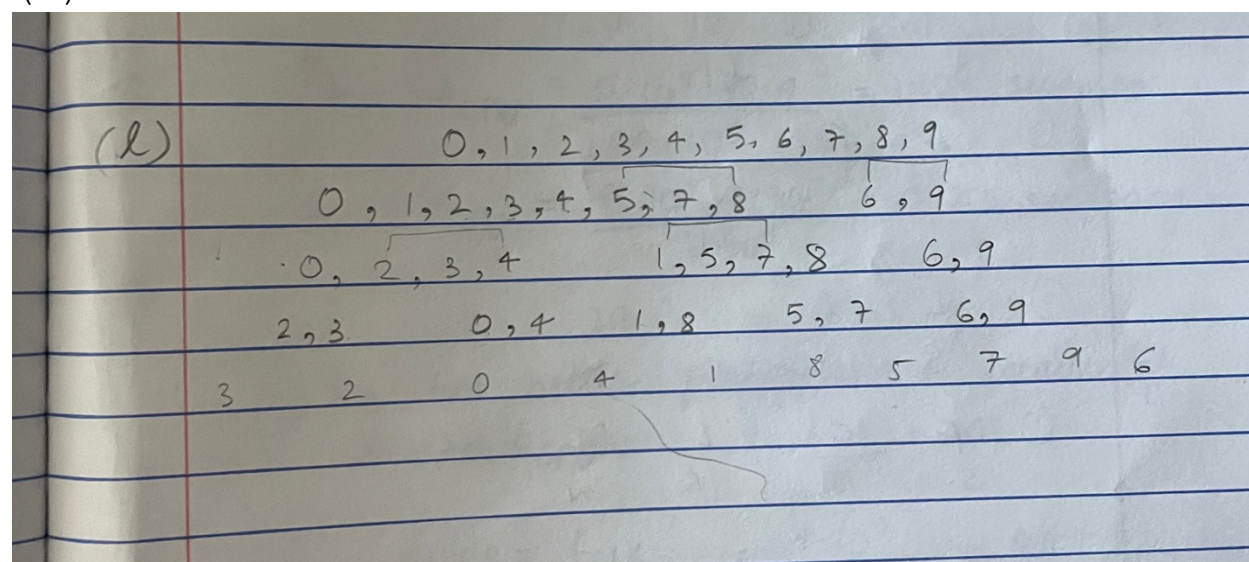 (l) 0, 1, 2, 3, 4, 5, 6, 7, 8, 9
0, 1, 2, 3, 4, 5, 7, 8 6, 9
0, 2, 3, 4 1, 5, 7, 8 6, 9
2, 3 0, 4 1, 8 5, 7 6, 9
3 2 0 4 1 8 5 7 9 6